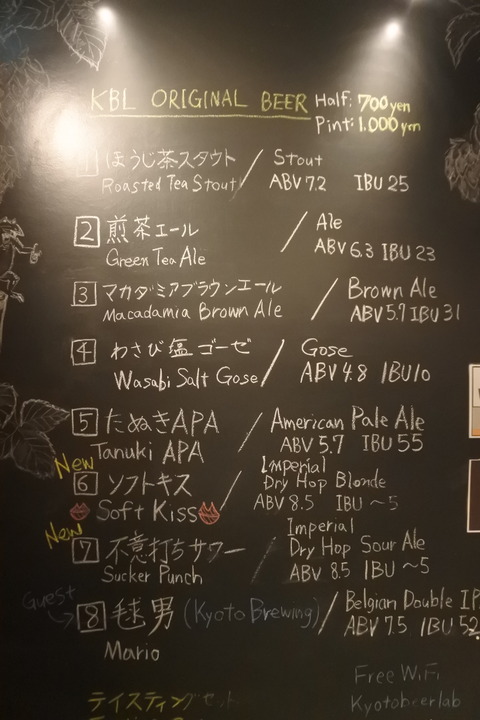 KBL ORIGINAL BEER Half: 700yen
Pint: 1.000yen
1 ほうじ茶スタウト / Stout
Roasted Tea Stout ABV 7.2 IBU 25
2 煎茶エール / Ale
Green Tea Ale ABV 6.3 IBU 23
3 マカダミアブラウンエール / Brown Ale
Macadamia Brown Ale ABV 5.7 IBU 31
4 わさび塩ゴーゼ / Gose
Wasabi Salt Gose ABV 4.8 IBU10
5 たぬきAPA / American Pale Ale
Tanuki APA ABV 5.7 IBU 55
New
6 ソフトキス / Imperial
Dry Hop Blonde
Soft Kiss ABV 8.5 IBU ~5
New
7 不意打ちサワー / Imperial
Dry Hop Sour Ale
Sucker Punch ABV 8.5 IBU ~5
Guest
8 毬男 (Kyoto Brewing) / Belgian Double IP
Mario ABV 7.5 IBU 52
Free WiFi
Kyotobeerlab
テイスティングセット